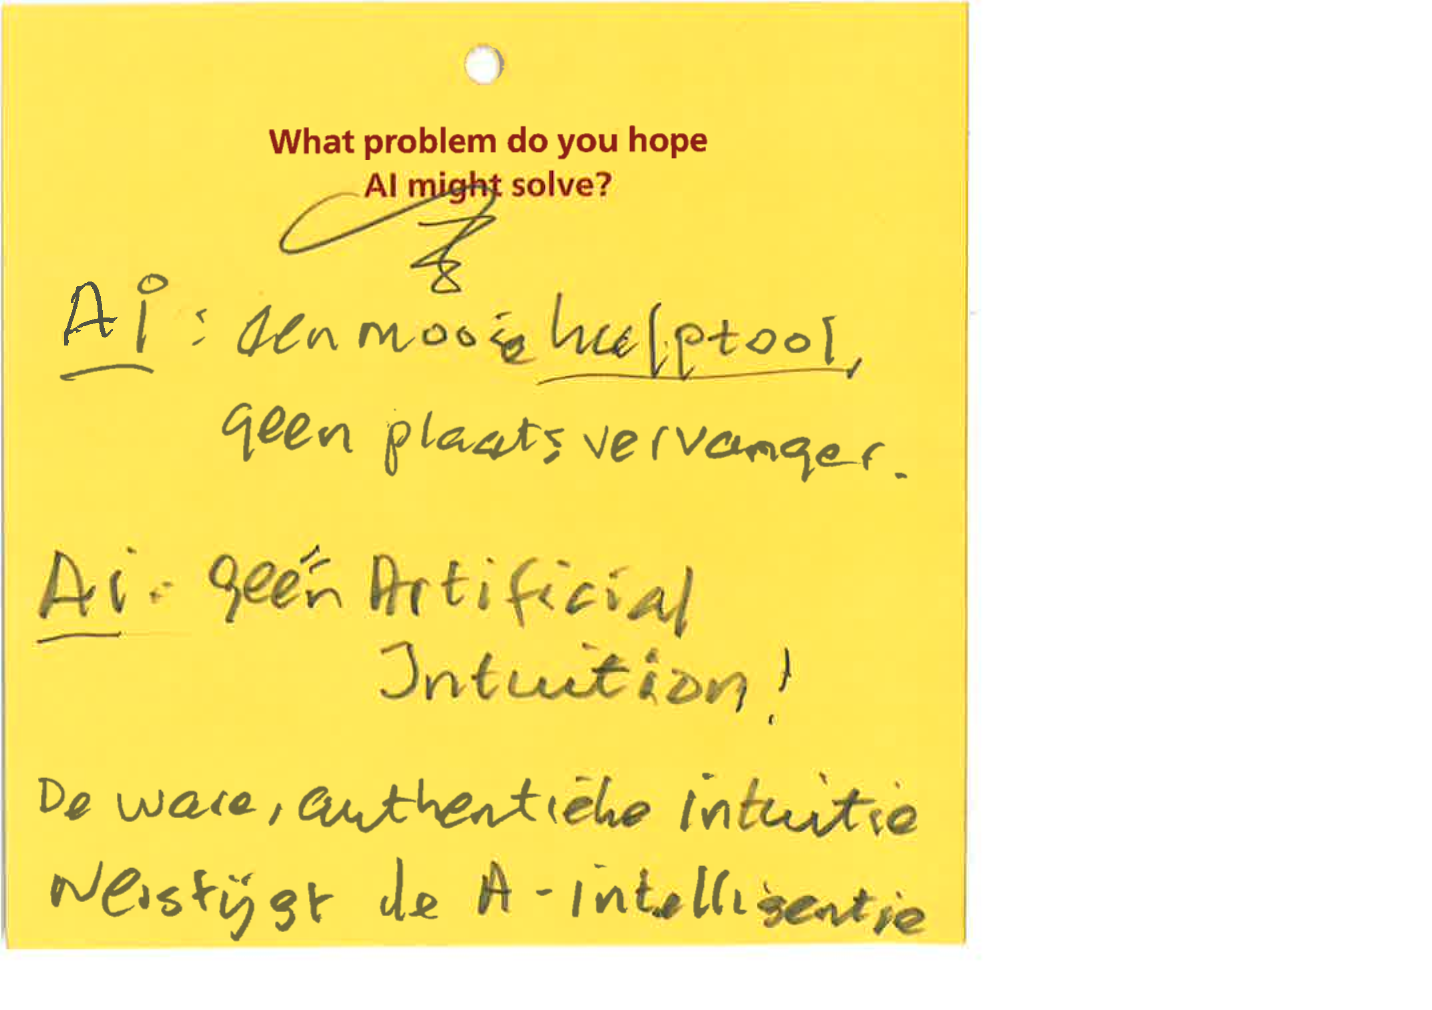 What problem do you hope
AI might solve?
Ai: een mooie hulptool,
geen plaatsvervanger.
Ai: geén Artificial
Intuition!
De ware, authentieke intuitie
overstijgt de A-intelligentie